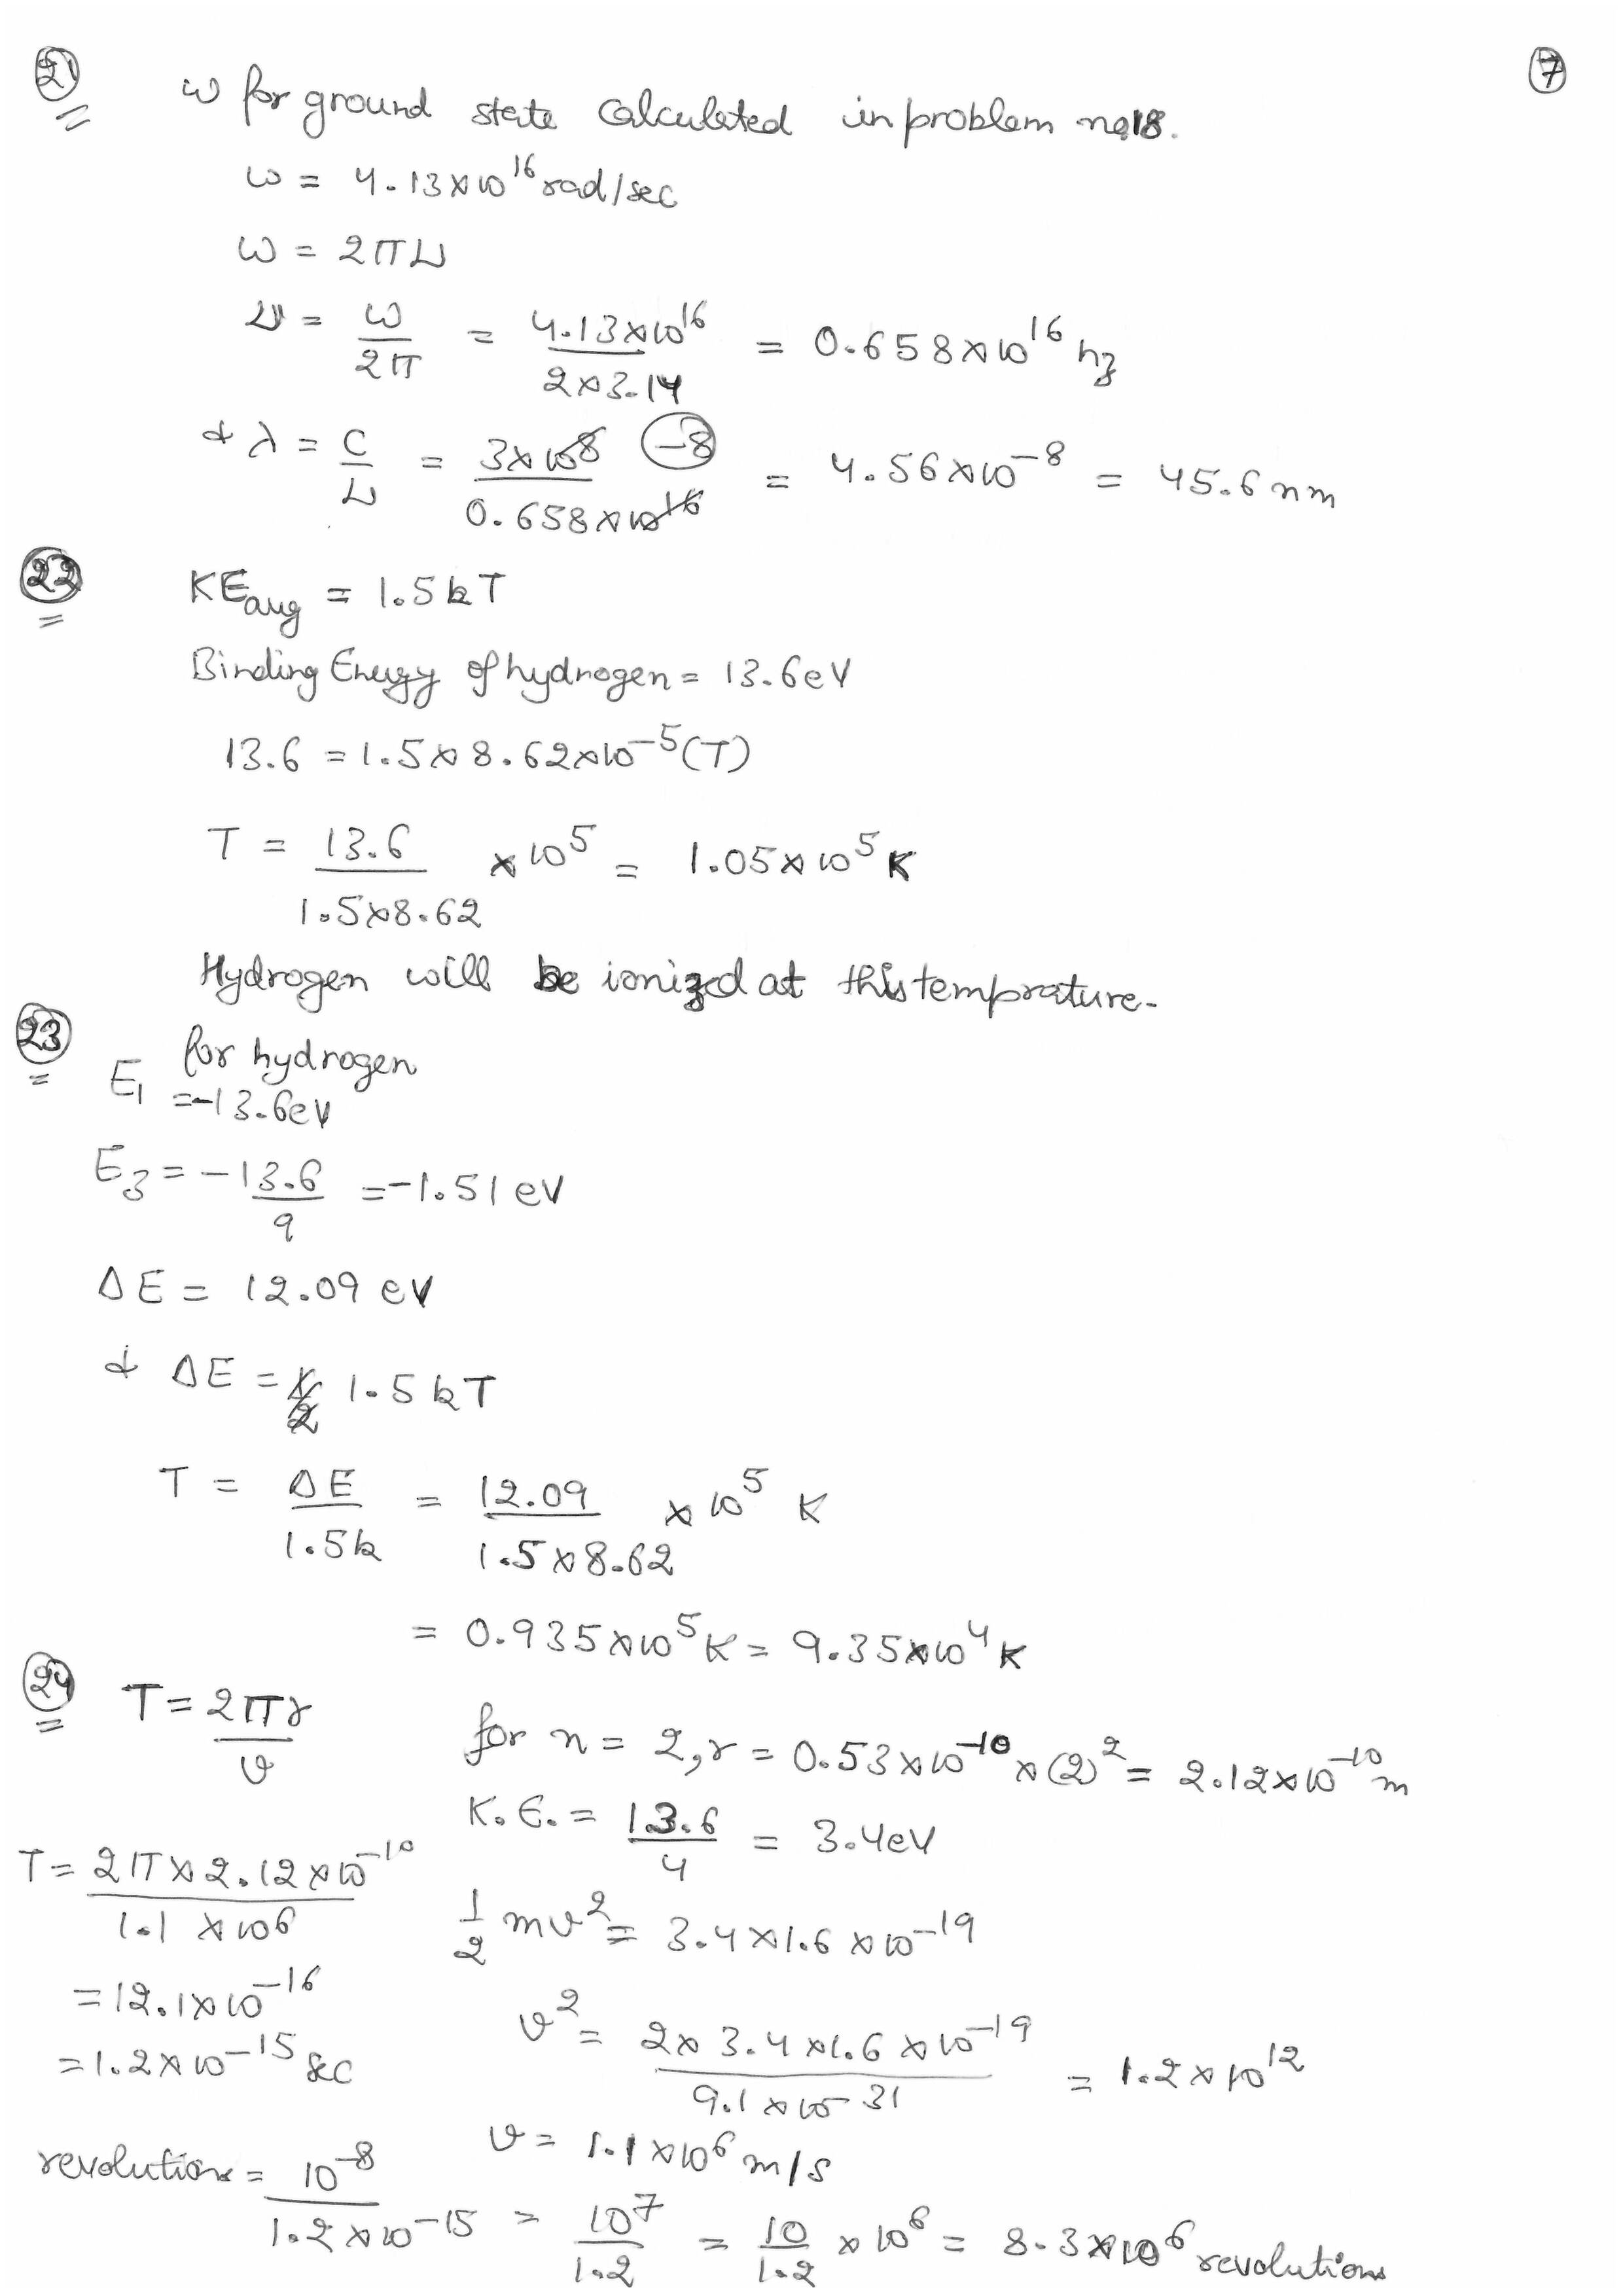 21
7
ω for ground state calculated in problem no 18.
ω = 4.13×10^16 rad/sec
ω = 2πν
ν = ω/2π = 4.13×10^16/2×3.14 = 0.658×10^16 hz
& λ = C/ν = 3×10^8/0.658×10^16 (-8) = 4.56×10^-8 = 45.6 nm
22
KEavg = 1.5 kT
Binding Energy of hydrogen = 13.6eV
13.6 = 1.5×8.62×10^-5 (T)
T = 13.6/1.5×8.62 ×10^5 = 1.05×10^5 K
Hydrogen will be ionized at this temprature.
23
for hydrogen
E1 = -13.6eV
E3 = -13.6/9 = -1.51 eV
ΔE = 12.09 eV
& ΔE = 1.5 kT
T = ΔE/1.5k = 12.09/1.5×8.62 ×10^5 K
= 0.935×10^5 K = 9.35×10^4 K
24
T = 2πr/v
for n = 2, r = 0.53×10^-10 × (2)^2 = 2.12×10^-10 m
K.E. = 13.6/4 = 3.4eV
T = 2π×2.12×10^-10/1.1×10^6
1/2 mv^2 = 3.4×1.6×10^-19
= 12.1×10^-16
v^2 = 2×3.4×1.6×10^-19/9.1×10^-31 = 1.2×10^12
= 1.2×10^-15 sec
v = 1.1×10^6 m/s
revolutions = 10^-8/1.2×10^-15 = 10^7/1.2 = 10/1.2 ×10^6 = 8.3×10^6 revolutions